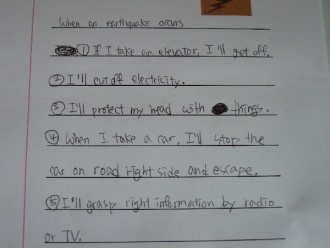 When an earthquake occurs
① If I take an elevator, I'll get off.
② I'll cut off electricity.
③ I'll protect my head with things.
④ When I take a car, I'll stop the
car on road right side and escape.
⑤ I'll grasp right information by radio
or TV.